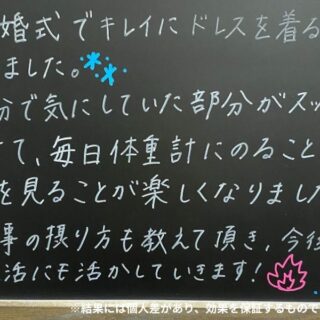 婚式でキレイにドレスを着る
ました。
分で気にしていた部分がスッ
て、毎日体重計にのること
を見ることが楽しくなりました
事の摂り方も教えて頂き、今後
活にも活かしていきます!
※結果には個人差があり、効果を保証するもので